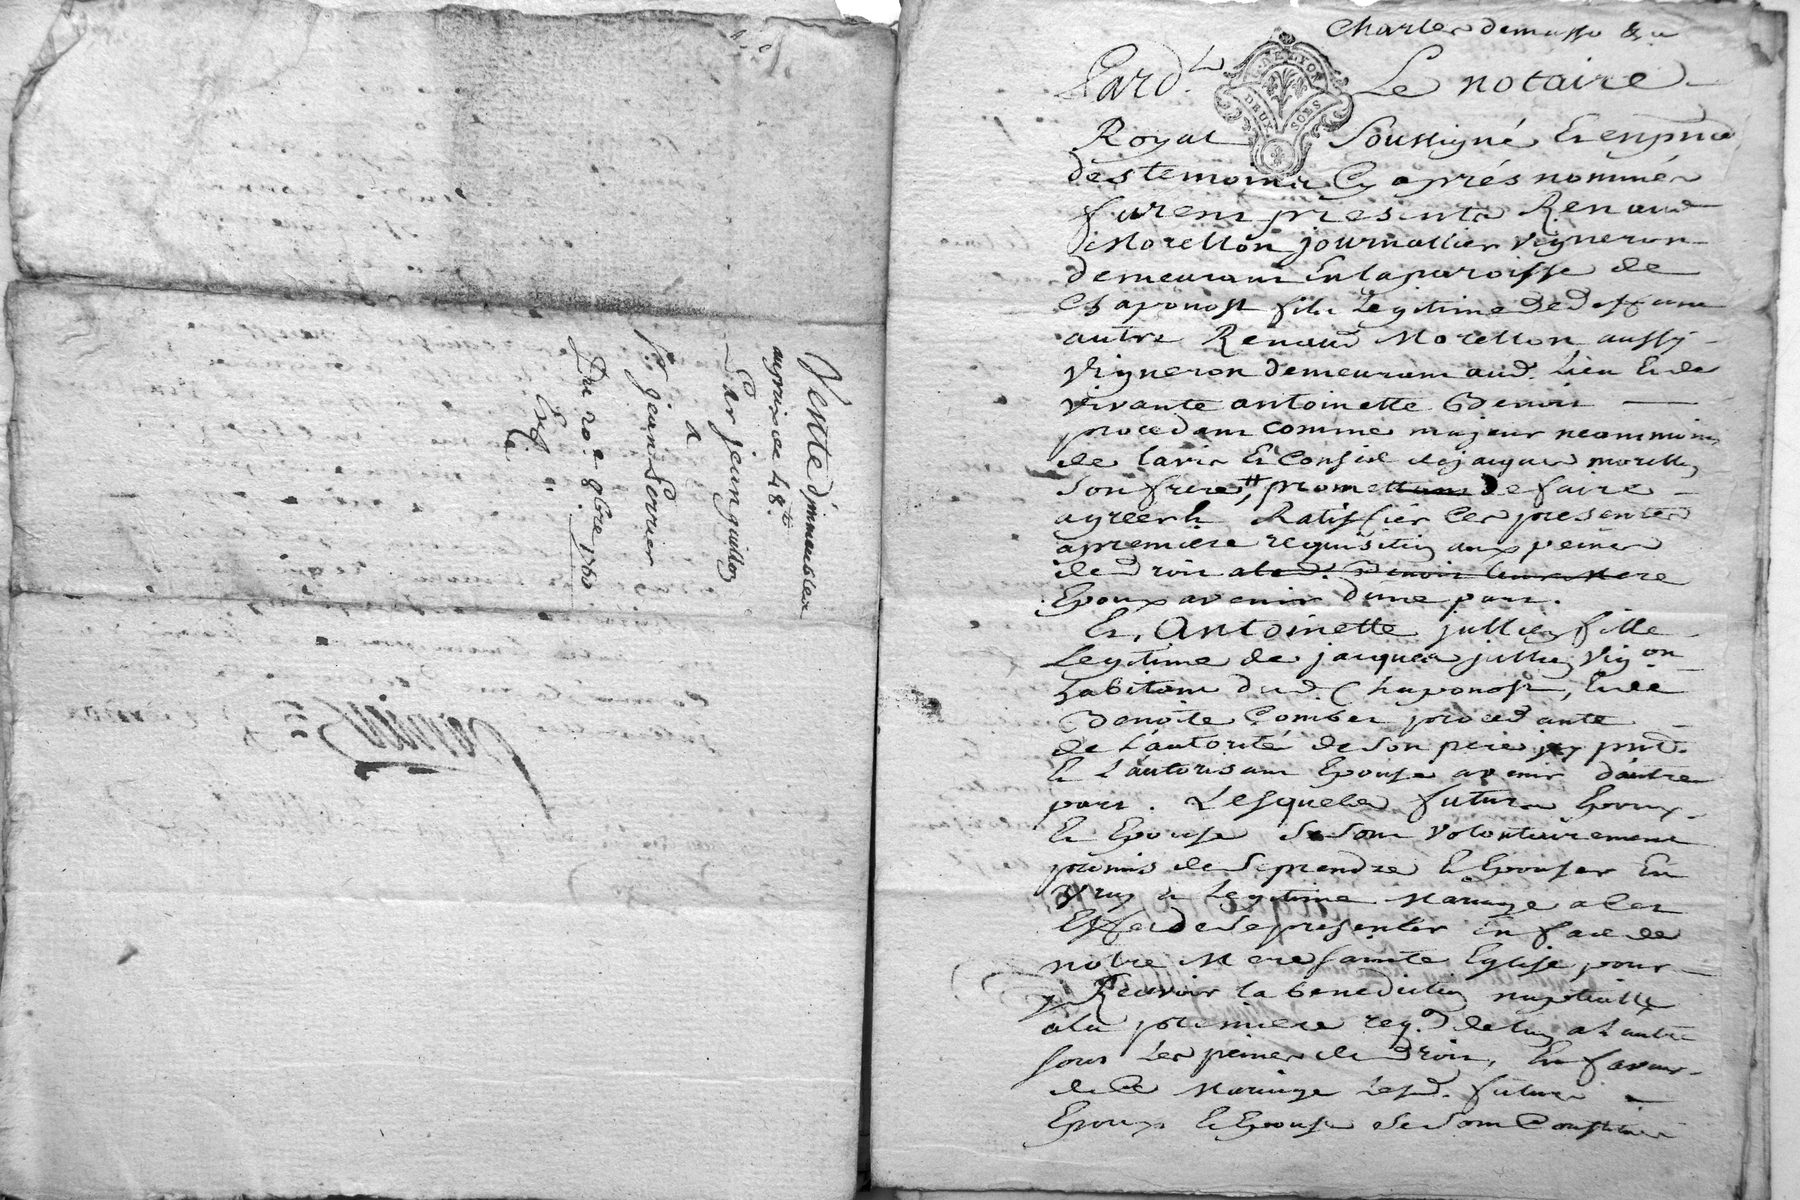 Vente d'immeubles
au prix de 48ᵗᵗ
Par jean guillon
a
Sr. jean Perrier
Du 20e 8bre 1760
Expe.
Charles demasso &a
Pard.t Le notaire
G. DE LYON
DEUX SOLS
Royal Soussigné Et enpnce
des temoins Cy aprés nommés
furent presents Renaud
Morellon journallier vigneron
demeurant En la paroisse de
Chaponost fils Legitime de deffunt
autre Renaud Morellon aussy
vigneron demeurant aud. Lieu Et de
vivante antoinette Benoit
procedant comme majeur neanmoins
de lavis Et Conseil de jacques morellon
son frere, promettant de faire
agreer Et Ratiffier Ces presentes
a premiere requisition aux peines
de droit a lad. Benoit leur Mere
Epoux avenir d'une part.
Et, Antoinette jullien fille
Legitime de jacques jullien vigon
habitant dud. Chaponost, Et de
Benoite Combet procedante
de L'autorité de son pere icy pnt.
Et L'autorisant Epouse avenir d'autre
part. Lesquels futurs Epoux
Et Epouse Se sont volontairement
promis de Se prendre Et Epouser En
vray Et Legitime Mariage a Cet
Effet de Se presenter En face de
notre Mere sainte Eglise pour
y Recevoir la benediction nuptialle
a la premiere req.on de lun a L'autre
sous Les peines de droit, En faveur
de Ce Mariage Lesd. futurs
Epoux Et Epouse Se sont Constitués